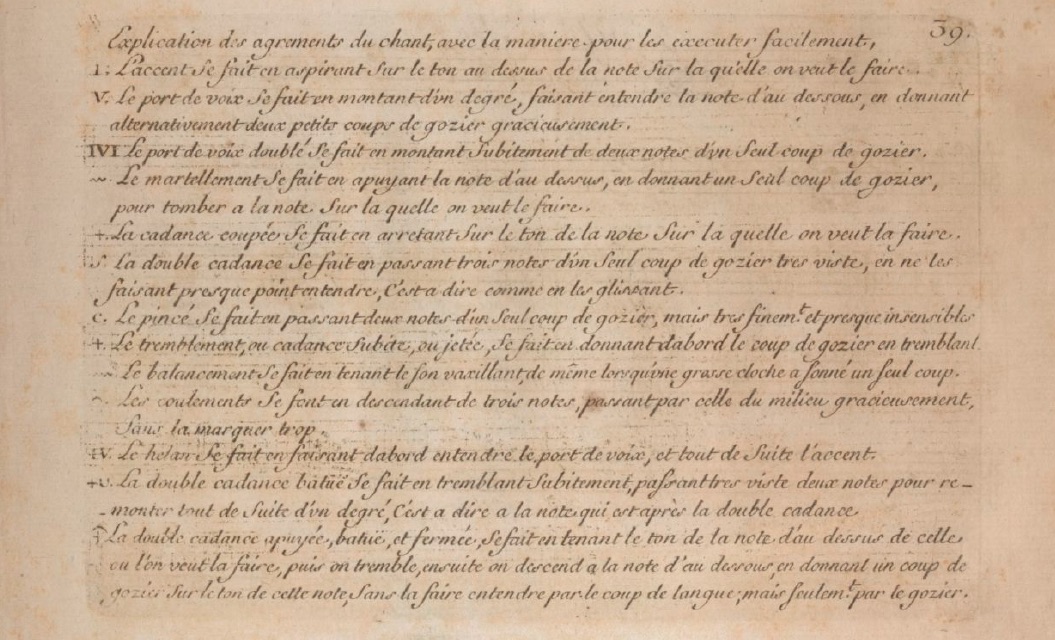 39.
Explication des agrements du chant, avec la maniere pour les executer facilement,
I: L'accent Se fait en aspirant Sur le ton au dessus de la note Sur la qu'elle on veut le faire.
V. Le port de voix Se fait en montant d'vn degré, faisant entendre la note d'au dessous, en donnant
alternativement deux petits coups de gozier gracieusement.
IVI Le port de voix doublé Se fait en montant Subitement de deux notes d'vn Seul coup de gozier.
~ Le martellement Se fait en apuyant la note d'au dessus, en donnant un Seul coup de gozier,
pour tomber a la note Sur la quelle on veut le faire.
+. La cadance coupée Se fait en arretant Sur le ton de la note Sur la quelle on veut la faire.
S. La double cadance Se fait en passant trois notes d'vn Seul coup de gozier tres viste, en ne les
faisant presque point entendre, C'est a dire comme en les glissant.
c. Le pincé Se fait en passant deux notes d'un Seul coup de gozier, mais tres finem.t et presque insensibles
+. Le tremblement, ou cadance Subite, ou jetée, Se fait en donnant dabord le coup de gozier en tremblant.
~ Le balancement Se fait en tenant le Son vaxillant, de même lorsqu'vne grosse cloche a Sonné un Seul coup.
Les coulements Se font en descendant de trois notes, passant par celle du milieu gracieusement,
Sans la marquer trop.
IV. Le helan Se fait en faisant dabord entendre le port de voix, et tout de Suite l'accent.
+v. La double cadance batuë Se fait en tremblant Subitement, passant tres viste deux notes pour re-
-monter tout de Suite d'vn degré, C'est a dire a la note qui est après la double cadance
La double cadance apuyée, batuë, et fermée, Se fait en tenant le ton de la note d'au dessus de celle
ou l'on veut la faire, puis on tremble, ensuite on descend a la note d'au dessous, en donnant un coup de
gozier Sur le ton de cette note, Sans la faire entendre par le coup de langue, mais Seulem.t par le gozier.